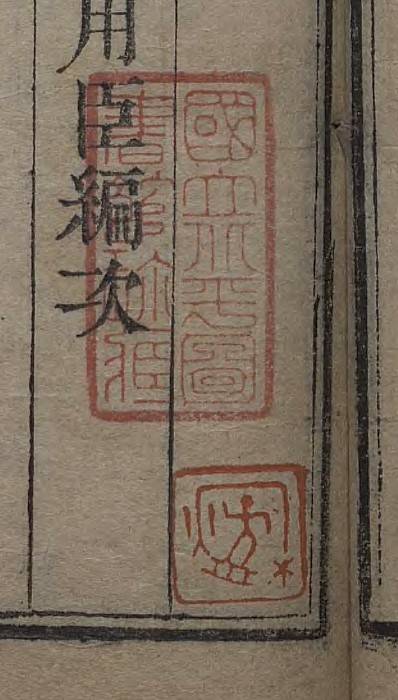 用臣編次
國立北平圖
書館珍藏